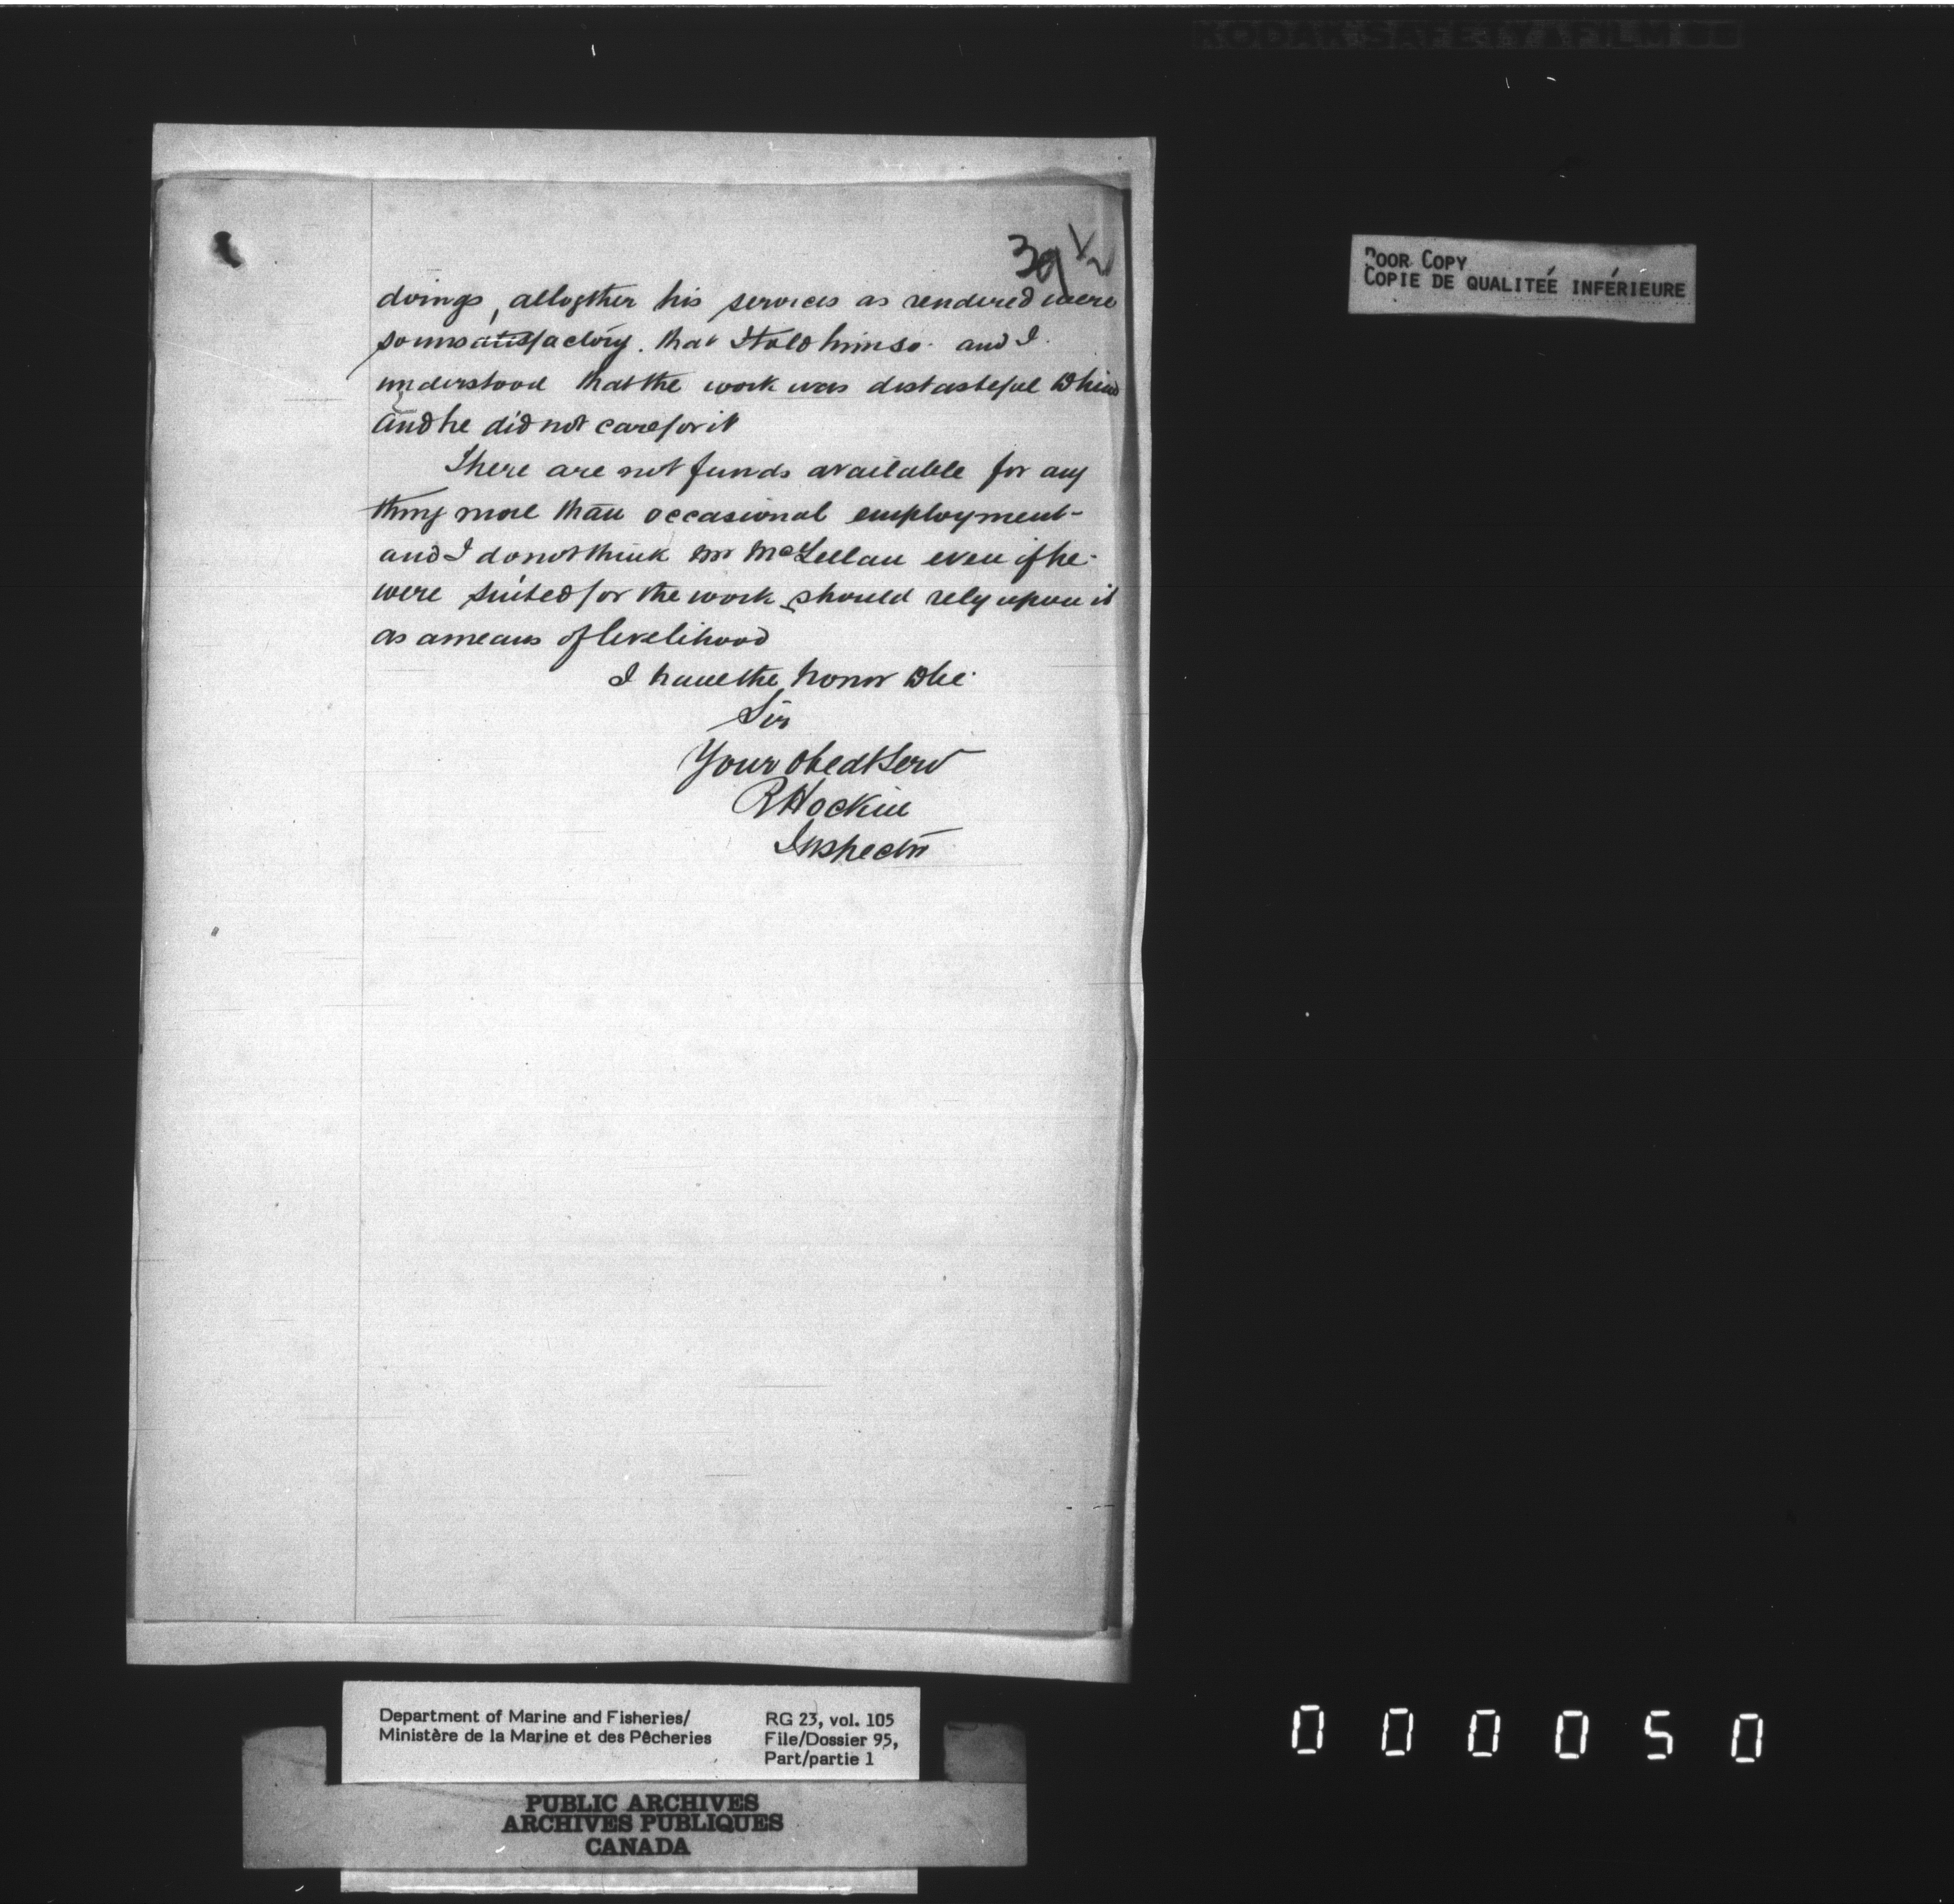 KODAK SAFETY FILM
POOR COPY
COPIE DE QUALITEÉ INFÉRIEURE
39 1/2
doings, altogther his services as rendered were
so unsatisfactory. that I told him so. and I
understood that the work was distasteful to him
and he did not care for it
There are not funds available for any
thing more than occasional employment-
and I do not think Mr McLellan even if he
were suited for the work should rely upon it
as a means of livelihood
I have the honor to be
Sir
Your obedt Serv
R Hockin
Inspector
Department of Marine and Fisheries/
Ministère de la Marine et des Pêcheries
RG 23, vol. 105
File/Dossier 95,
Part/partie 1
PUBLIC ARCHIVES
ARCHIVES PUBLIQUES
CANADA
000050